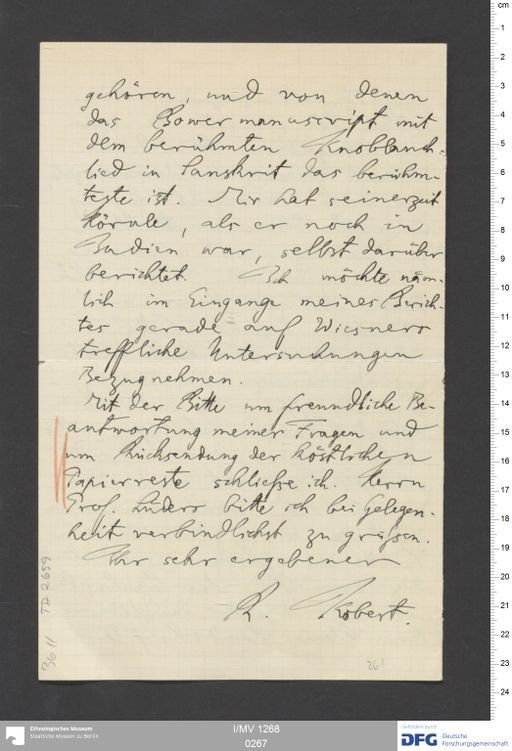 gehören, und von denen
das Bowermanuscript mit
dem berühmten Knoblauch-
lied in Sanskrit das berühm-
teste ist. Mir hat seinerzeit
Hörnle, als er noch in
Indien war, selbst darüber
berichtet. Ich möchte näm-
lich im Eingange meines Berich-
tes gerade auf Wiesners
treffliche Untersuchungen
Bezug nehmen.
Mit der Bitte um freundliche Be-
antwortung meiner Fragen und
um Rücksendung der köstlichen
Papierreste schließe ich. Herrn
Prof. Lüders bitte ich bei Gelegen-
heit verbindlichst zu grüßen.
Ihr sehr ergebener
R. Kobert.
TA 2659
36 11
26!
cm
1
2
3
4
5
6
7
8
9
10
11
12
13
14
15
16
17
18
19
20
21
22
23
24
Ethnologisches Museum
Staatliche Museen zu Berlin
I/MV 1268
0267
Gefördert durch
DFG Deutsche
Forschungsgemeinschaft